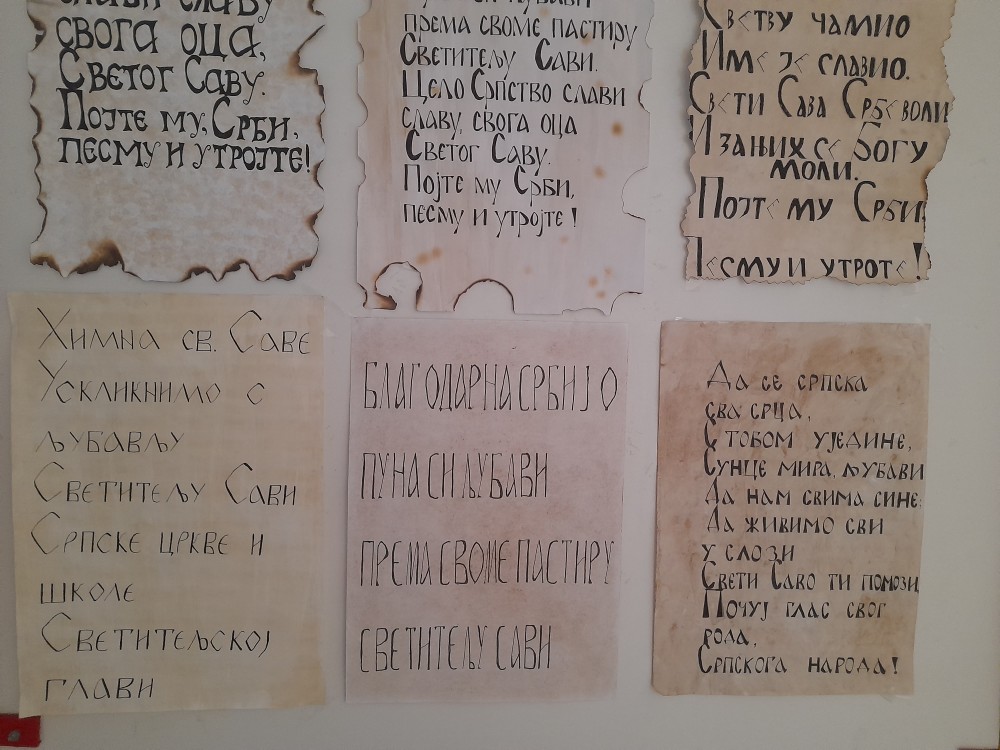 слави славу
свога оца,
Светог Саву.
Појте му, Срби,
песму и утројте!
према своме пастиру
Светитељу Сави.
Цело Српство слави
славу, свога оца
Светог Саву.
Појте му Срби,
песму и утројте!
чамио
Име је славио.
Свети Сава Србе воли
И за њих се Богу
моли.
Појте му Срби,
Песму и утроте!
Химна св. Саве
Ускликнимо с
љубављу
Светитељу Сави
Српске цркве и
школе
Светитељској
глави
БЛАГОДАРНА СРБИЈО
ПУНА СИ ЉУБАВИ
ПРЕМА СВОМЕ ПАСТИРУ
СВЕТИТЕЉУ САВИ
Да се српска
сва срца,
С тобом уједине,
Сунце мира, љубави
Да нам свима сине;
Да живимо сви
у слози
Свети Саво ти помози
Почуј глас свог
рода,
Српскога народа!